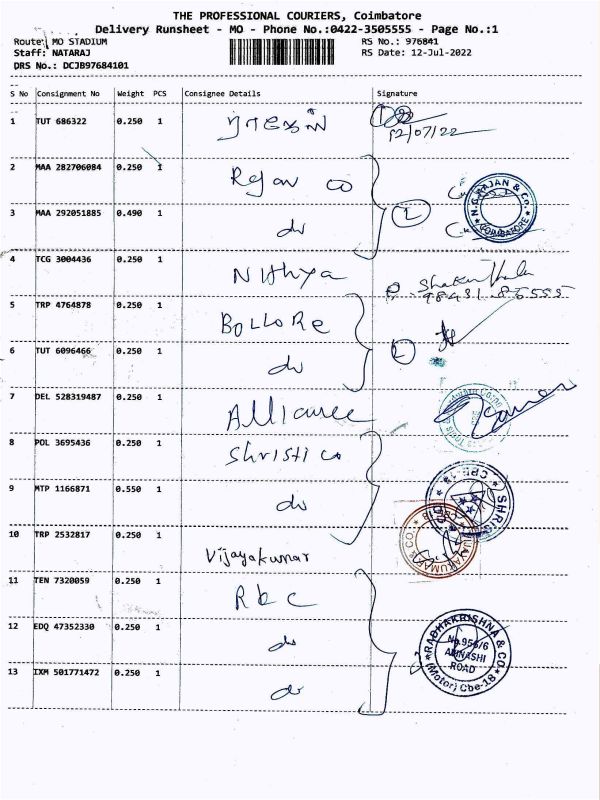 THE PROFESSIONAL COURIERS, Coimbatore
Delivery Runsheet - MO - Phone No.:0422-3505555 - Page No.:1
Route: MO STADIUM RS No.: 976841
Staff: NATARAJ RS Date: 12-Jul-2022
DRS No.: DCJB97684101
S No Consignment No Weight PCS Consignee Details Signature
1 TUT 686322 0.250 1
12/07/22
2 MAA 282706084 0.250 1 Rajan co
N.G.RAJAN & Co. COIMBATORE
3 MAA 292051885 0.490 1 do 2
4 TCG 3004436 0.250 1 Nithya
98431 85555
5 TRP 4764878 0.250 1 BOLLORE
6 TUT 6096466 0.250 1 do 2
7 DEL 528319487 0.250 1 Alliance
8 POL 3695436 0.250 1 Shristi co
9 MTP 1166871 0.550 1 do
10 TRP 2532817 0.250 1 Vijayakumar
11 TEN 7320059 0.250 1 RKC
12 EDQ 47352330 0.250 1 do
RADHAKRISHNA & CO.
No.956/6
AVINASHI
ROAD
(Motor) Cbe-18
13 IXM 501771472 0.250 1 do